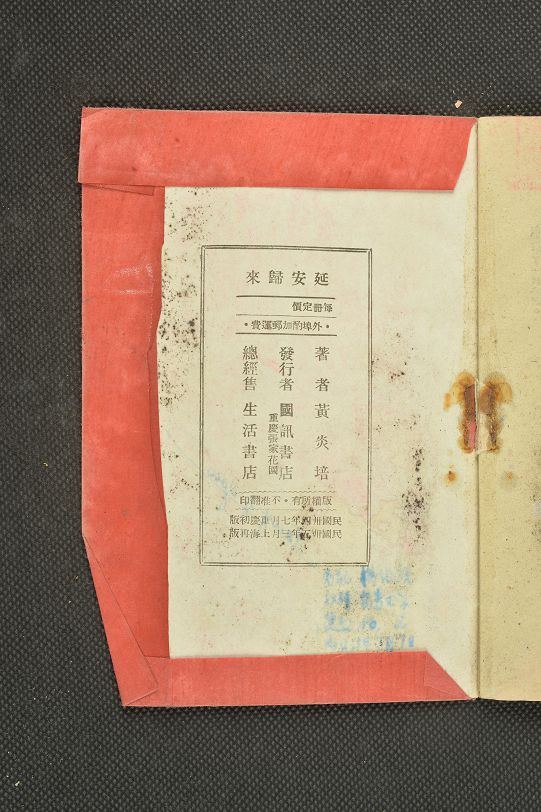 延安歸來
每冊定價
·外埠酌加郵運費·
著者 黃炎培
發行者 國訊書店
重慶張家花園
總經售 生活書店
版權所有·不准翻印
民國卅四年七月重慶初版
民國卅五年三月上海再版